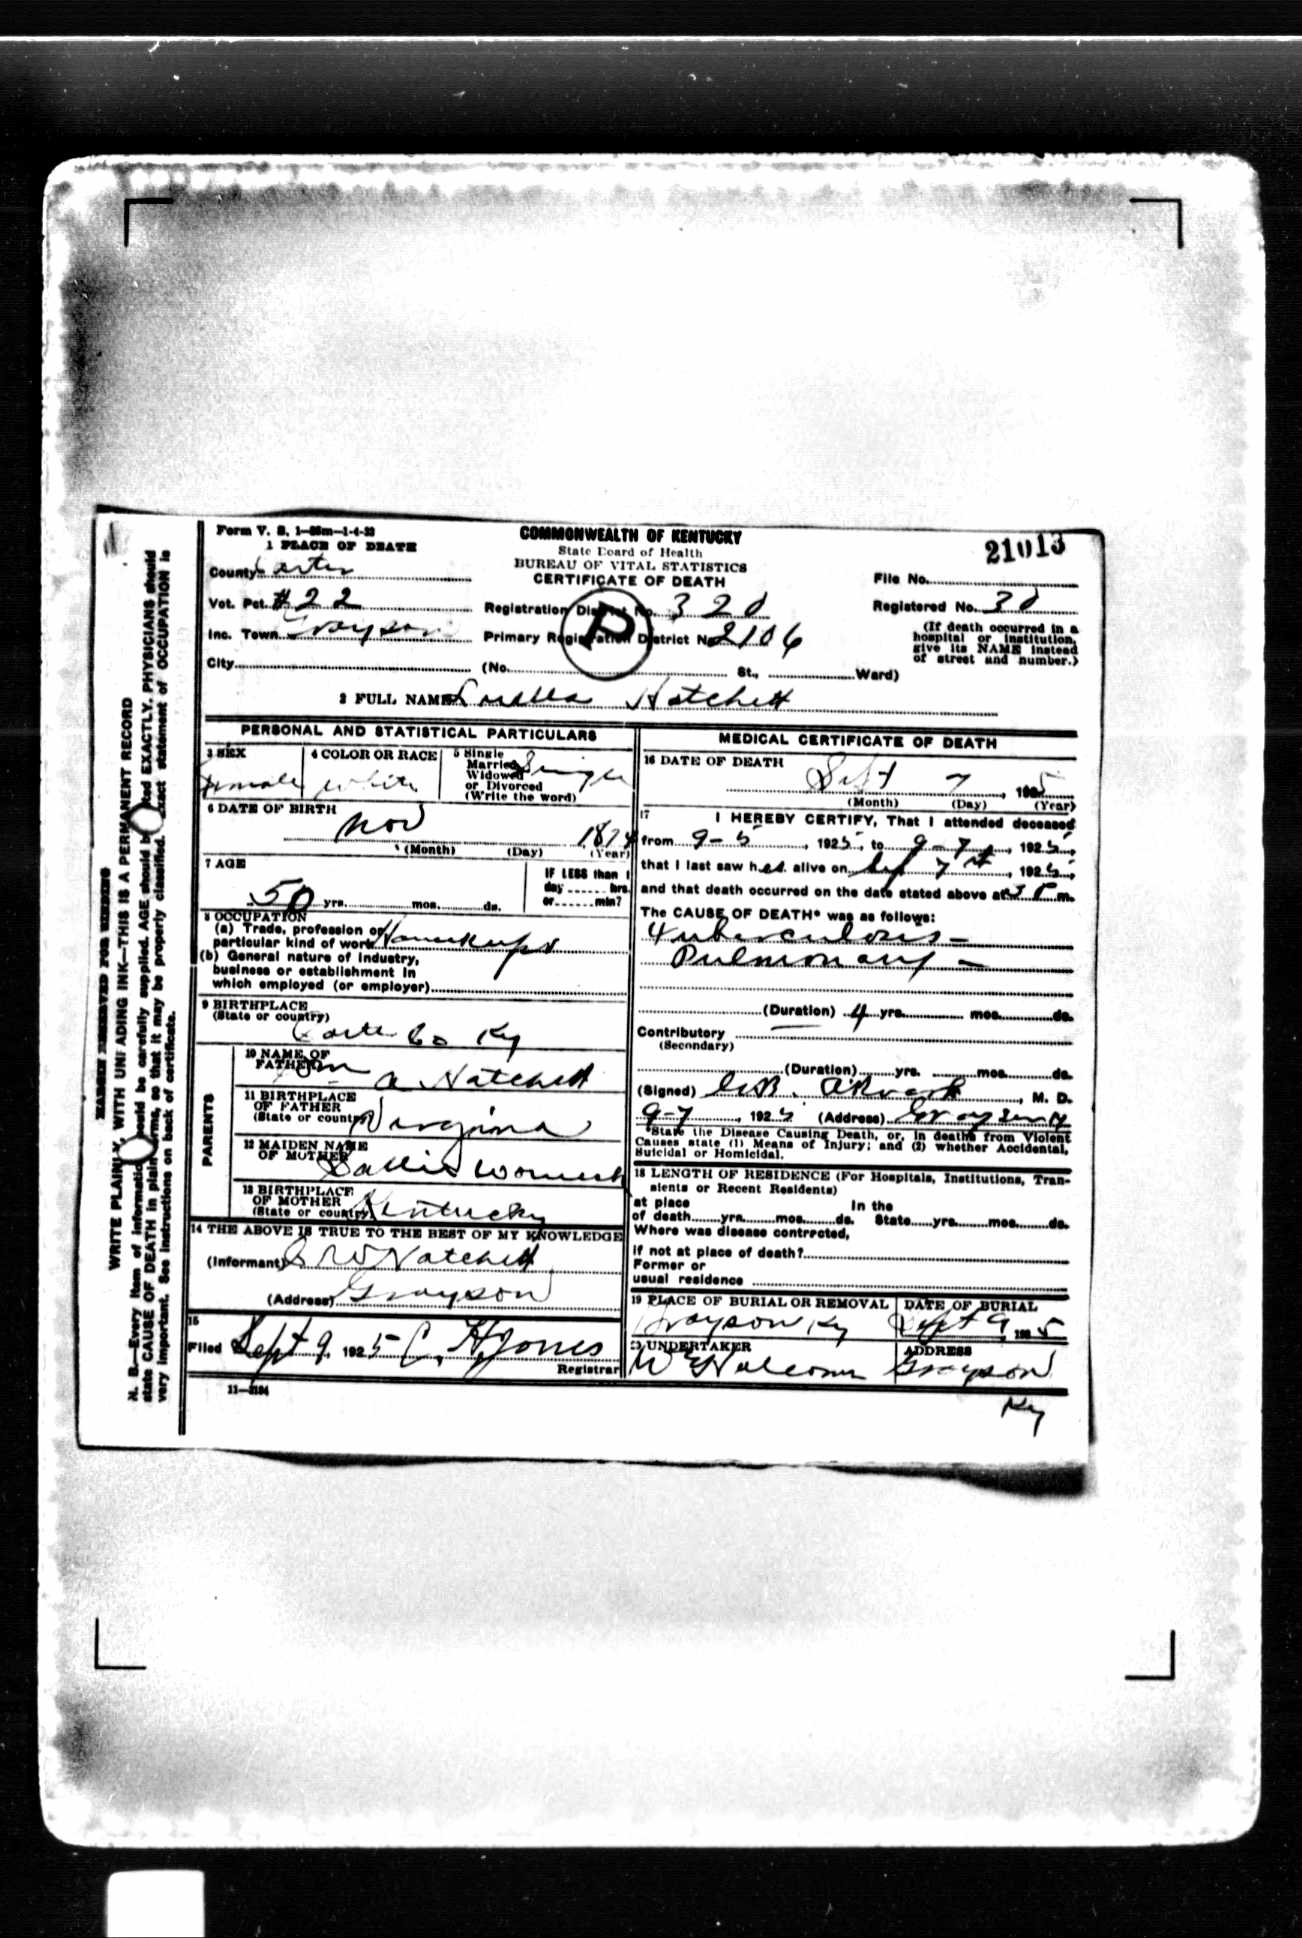 Form V. S. 1—25m—1-4-23
COMMONWEALTH OF KENTUCKY
State Board of Health
BUREAU OF VITAL STATISTICS
CERTIFICATE OF DEATH
21013
1 PLACE OF DEATH
County Carter
File No.
Vot. Pct. #22
Registration District No. 320
Registered No. 30
Inc. Town Grayson
Primary Registration District No. 2106
P
(If death occurred in a hospital or institution, give its NAME instead of street and number.)
City
(No. St., Ward)
2 FULL NAME Luella Hatchett
PERSONAL AND STATISTICAL PARTICULARS
3 SEX
Female
4 COLOR OR RACE
White
5 Single
Married
Widowed
or Divorced
(Write the word)
Single
6 DATE OF BIRTH
Nov 1874
(Month) (Day) (Year)
7 AGE
50 yrs. mos. ds.
IF LESS than 1
day hrs.
or min?
8 OCCUPATION
(a) Trade, profession or
particular kind of work Housekeeper
(b) General nature of industry,
business or establishment in
which employed (or employer)
9 BIRTHPLACE
(State or country)
Carter Co Ky
PARENTS
10 NAME OF
FATHER
A Hatchett
11 BIRTHPLACE
OF FATHER
(State or country) Virginia
12 MAIDEN NAME
OF MOTHER
Sallie Womack
13 BIRTHPLACE
OF MOTHER
(State or country) Kentucky
14 THE ABOVE IS TRUE TO THE BEST OF MY KNOWLEDGE
(Informant) W Hatchett
(Address) Grayson
15
Filed Sept 9, 1925 C. H. Jones
Registrar
11—3184
MEDICAL CERTIFICATE OF DEATH
16 DATE OF DEATH
Sept 7, 1925
(Month) (Day) (Year)
17
I HEREBY CERTIFY, That I attended deceased
from 9-5, 1925, to 9-7, 1925,
that I last saw her alive on Sep 7th, 1925,
and that death occurred on the date stated above at 3 P m.
The CAUSE OF DEATH* was as follows:
Tuberculosis —
Pulmonary —
(Duration) 4 yrs. mos. ds.
Contributory
(Secondary)
(Duration) yrs. mos. ds.
(Signed) , M. D.
9-7, 1925 (Address) Grayson Ky
*State the Disease Causing Death, or, in deaths from Violent
Causes state (1) Means of Injury; and (2) whether Accidental,
Suicidal or Homicidal.
18 LENGTH OF RESIDENCE (For Hospitals, Institutions, Tran-
sients or Recent Residents)
at place In the
of death yrs. mos. ds. State yrs. mos. ds.
Where was disease contracted,
if not at place of death?
Former or
usual residence
19 PLACE OF BURIAL OR REMOVAL
Grayson Ky
DATE OF BURIAL
Sept 9, 1925
20 UNDERTAKER
W E Holcomb
ADDRESS
Grayson
Ky
MARGIN RESERVED FOR BINDING
WRITE PLAINLY, WITH UNFADING INK—THIS IS A PERMANENT RECORD
N. B.—Every item of information should be carefully supplied. AGE should be stated EXACTLY. PHYSICIANS should
state CAUSE OF DEATH in plain terms, so that it may be properly classified. Exact statement of OCCUPATION is
very important. See instructions on back of certificate.